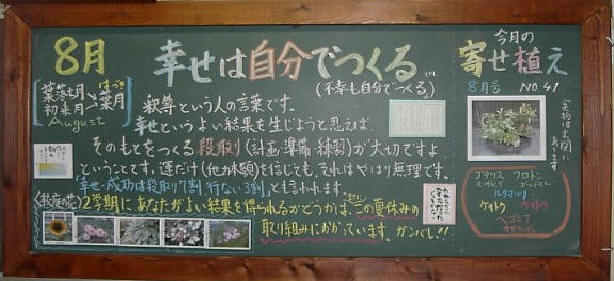 8月
葉落ち月 → 葉月
はづき
初来月
August
幸せは自分でつくる
(不幸も自分でつくる)
釈尊という人の言葉です。
幸せというよい結果を生じようと思えば、
そのもとをつくる段取り(計画・準備・練習)が大切ですよ
ということです。運だけ(他力本願)を信じても、それはやはり無理です。
「幸せ・成功は段取り7割 行ない3割」とも言われます。
〈校庭の花〉
2学期にあなたがよい結果を得られるかどうかは、この夏休みの
取り組みにかかっています。ガンバレ!!
今月の
寄せ植え
8月号 NO 41
実物は玄関にあります
クロトン
ルリマツリ
ケイトウ
ベゴニア